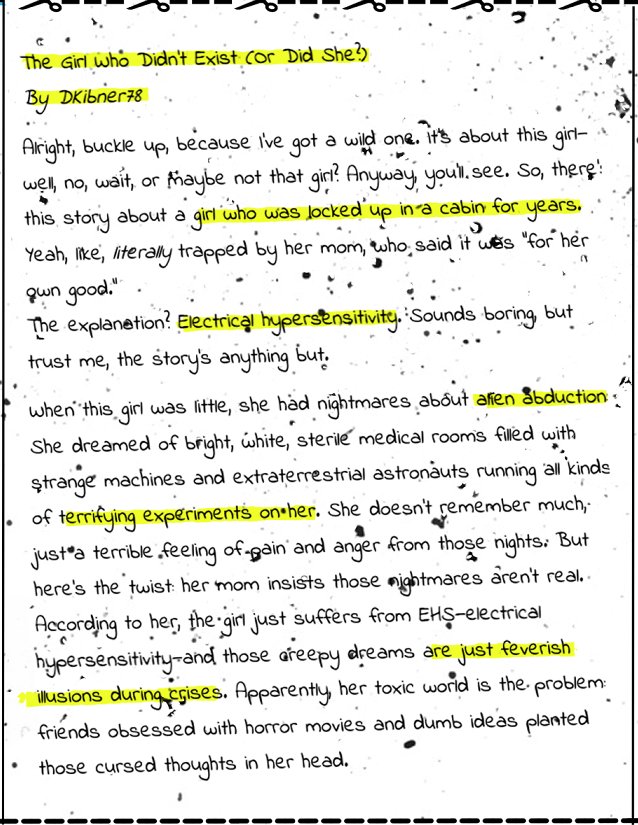 The Girl Who Didn't Exist (or Did She?)
By DKibner78
Alright, buckle up, because I've got a wild one. it's about this girl-
well, no, wait, or maybe not that girl? Anyway, you'll see. So, there's
this story about a girl who was locked up in a cabin for years.
Yeah, like, literally trapped by her mom, who said it was "for her
own good."
The explanation? Electrical hypersensitivity. Sounds boring, but
trust me, the story's anything but.
when this girl was little, she had nightmares about alien abduction.
She dreamed of bright, white, sterile medical rooms filled with
strange machines and extraterrestrial astronauts running all kinds
of terrifying experiments on her. She doesn't remember much,
just a terrible feeling of pain and anger from those nights. But
here's the twist: her mom insists those nightmares aren't real.
According to her, the girl just suffers from EHS-electrical
hypersensitivity-and those creepy dreams are just feverish
illusions during crises. Apparently, her toxic world is the problem:
friends obsessed with horror movies and dumb ideas planted
those cursed thoughts in her head.